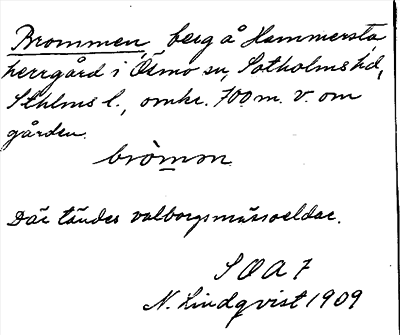 Brommen, berg å Hammersta
herrgård i Ösmo sn, Sotholms hd,
Sthlms l., omkr. 700 m. v. om
gården.
bròmm̥
Där tändes valborgsmässoeldar.
SOA 7
N. Lindqvist 1909